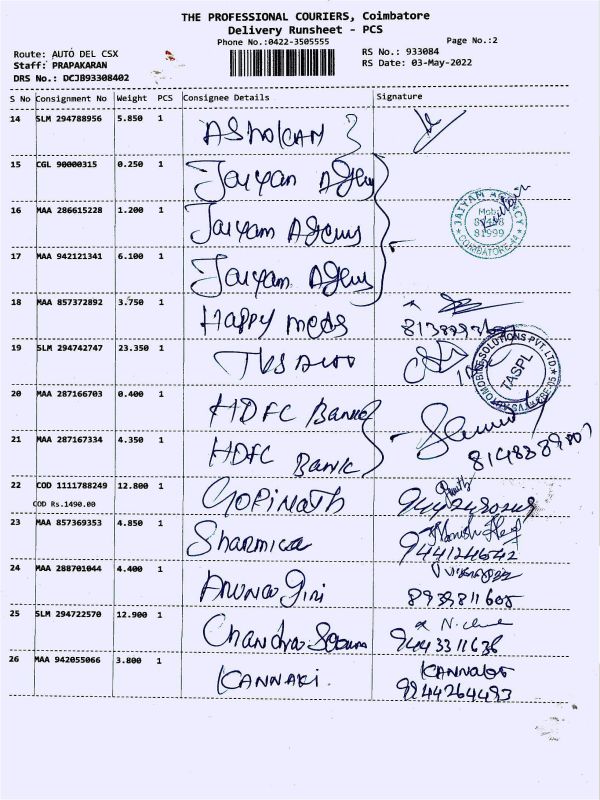 THE PROFESSIONAL COURIERS, Coimbatore
Delivery Runsheet - PCS
Phone No.:0422-3505555
Page No.:2
Route: AUTO DEL CSX
RS No.: 933084
Staff: PRAPAKARAN
RS Date: 03-May-2022
DRS No.: DCJB93308402
S No Consignment No Weight PCS Consignee Details Signature
14 SLM 294788956 5.850 1 ASHOKAN
15 CGL 90000315 0.250 1 Jaiyam Ageny
16 MAA 286615228 1.200 1 Jaiyam Agenys
JAIYAM AGENCY
COIMBATORE
17 MAA 942121341 6.100 1 Jaiyam Agenys
18 MAA 857372892 3.750 1 Happy meds
19 SLM 294742747 23.350 1 TVS Auto
TASPL
20 MAA 287166703 0.400 1 HDFC Bank
21 MAA 287167334 4.350 1 HDFC Bank
22 COD 1111788249 12.800 1 GOPINATH
COD Rs.1490.00
23 MAA 857369353 4.850 1 Sharmica
24 MAA 288701044 4.400 1 Aruna Giri
8939811605
25 SLM 294722570 12.900 1 Chandra
9443311636
26 MAA 942055066 3.800 1 KANNAKI.
9244264493